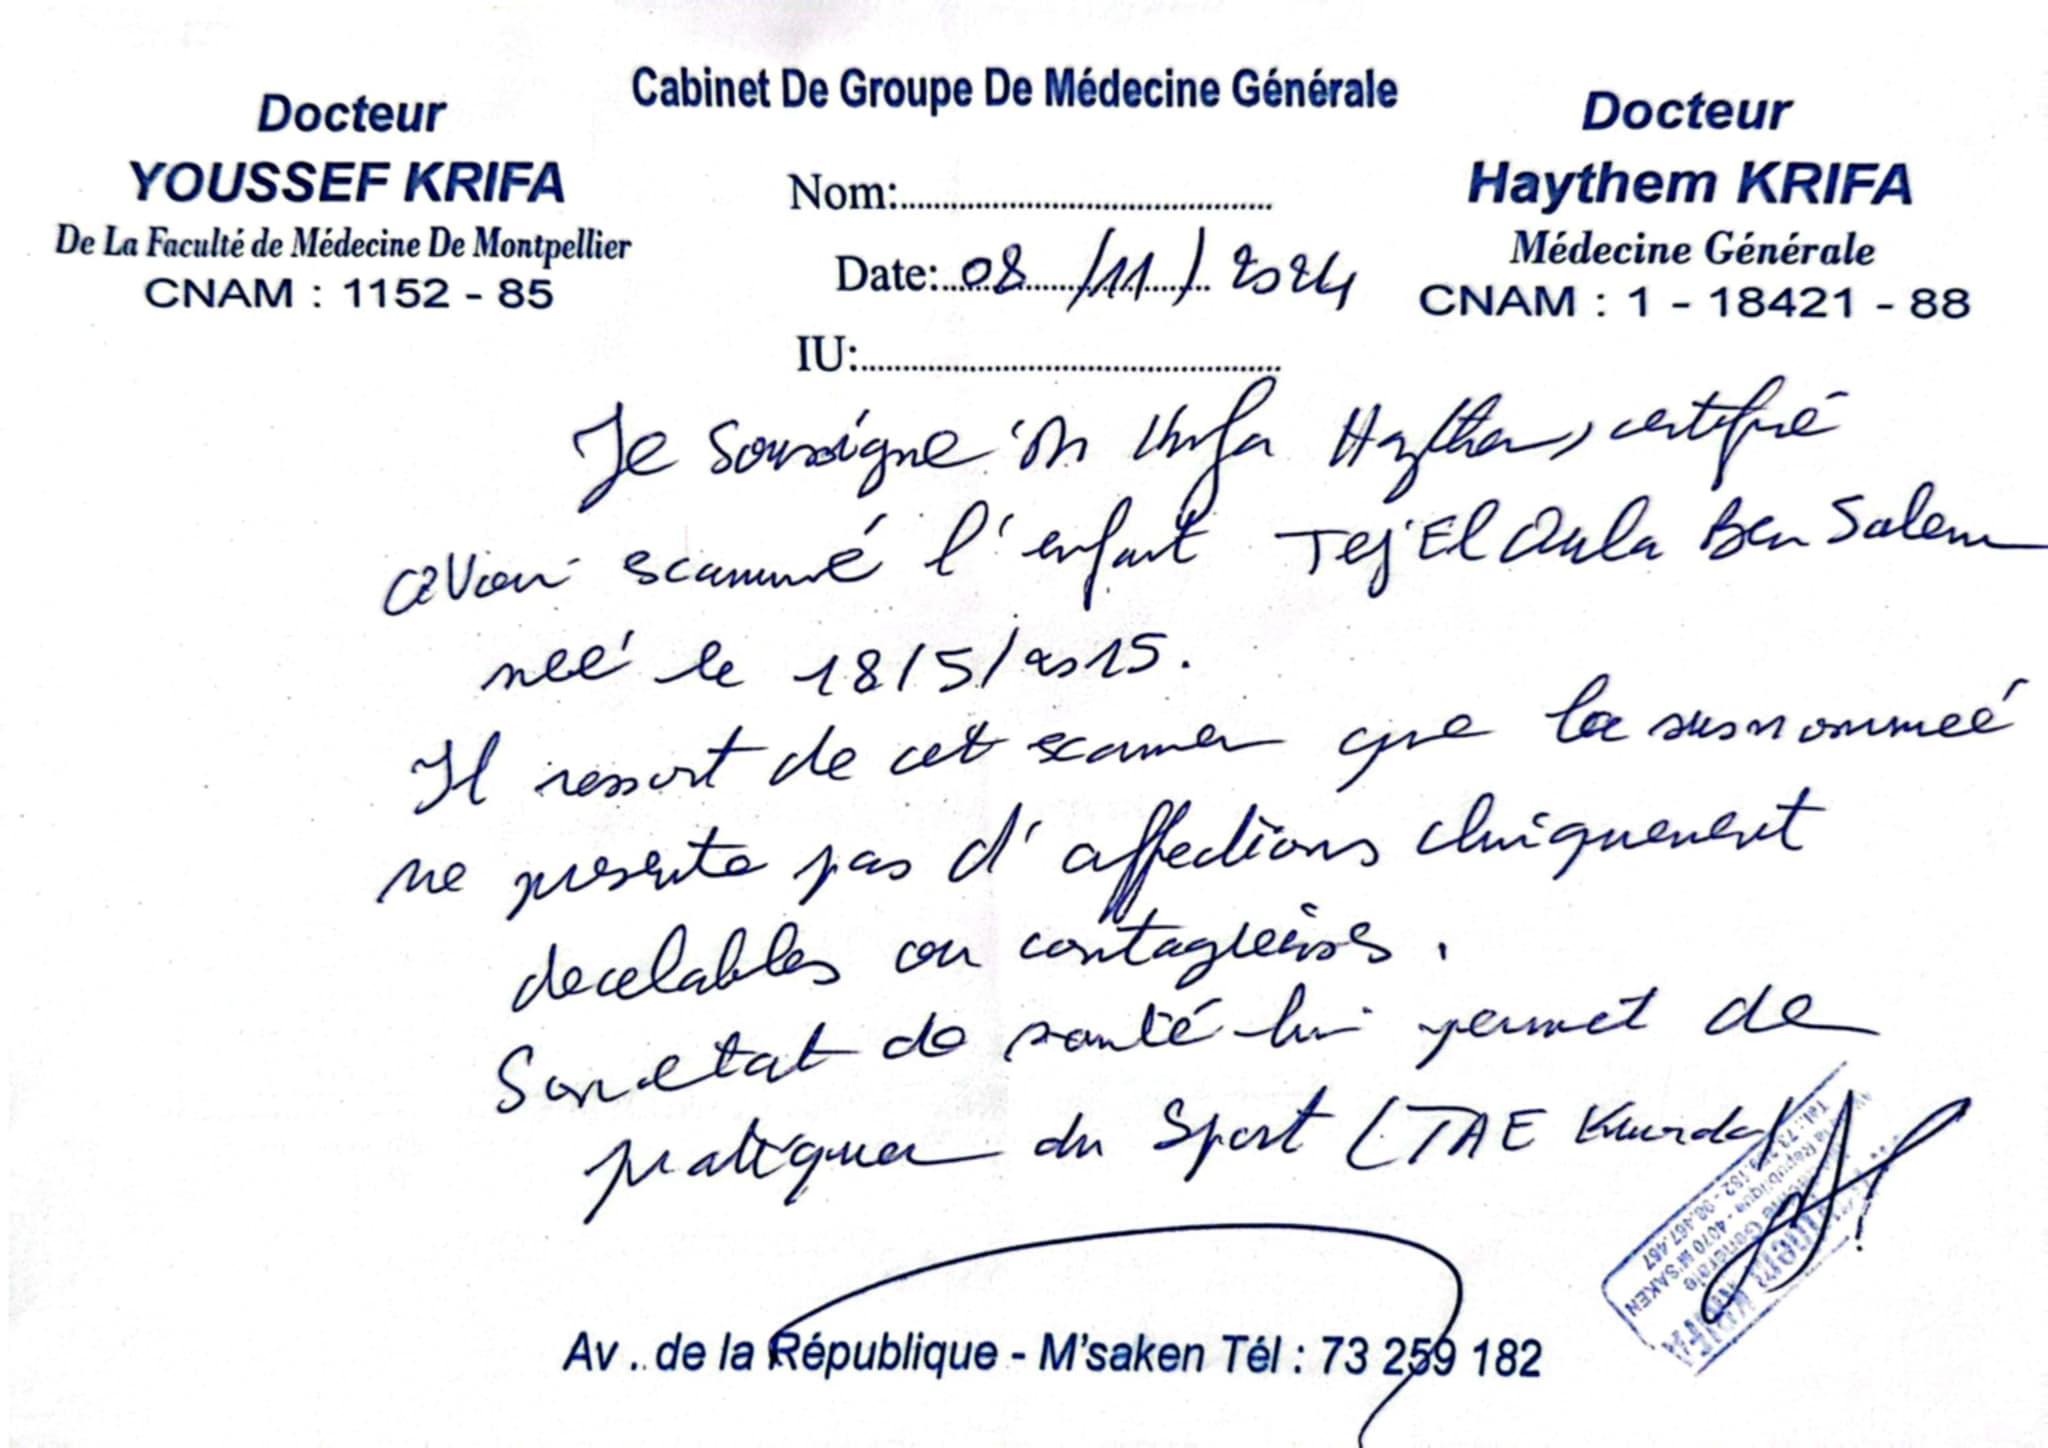 Cabinet De Groupe De Médecine Générale
Docteur
YOUSSEF KRIFA
De La Faculté de Médecine De Montpellier
CNAM : 1152 - 85
Nom:
Date: 08/11/2024
IU:
Docteur
Haythem KRIFA
Médecine Générale
CNAM : 1 - 18421 - 88
Je soussigné Dr Krifa Haythem, certifié
avoir examiné l'enfant Tej El Oula Ben Salem
neé le 18/5/2015.
Il ressort de cet examen que la susnommeé
ne presente pas d'affections cliniquement
decelables ou contagieuses.
Son etat de santé lui permet de
pratiquer du Sport (TAE
Av.. de la République - M'saken Tél : 73 259 182